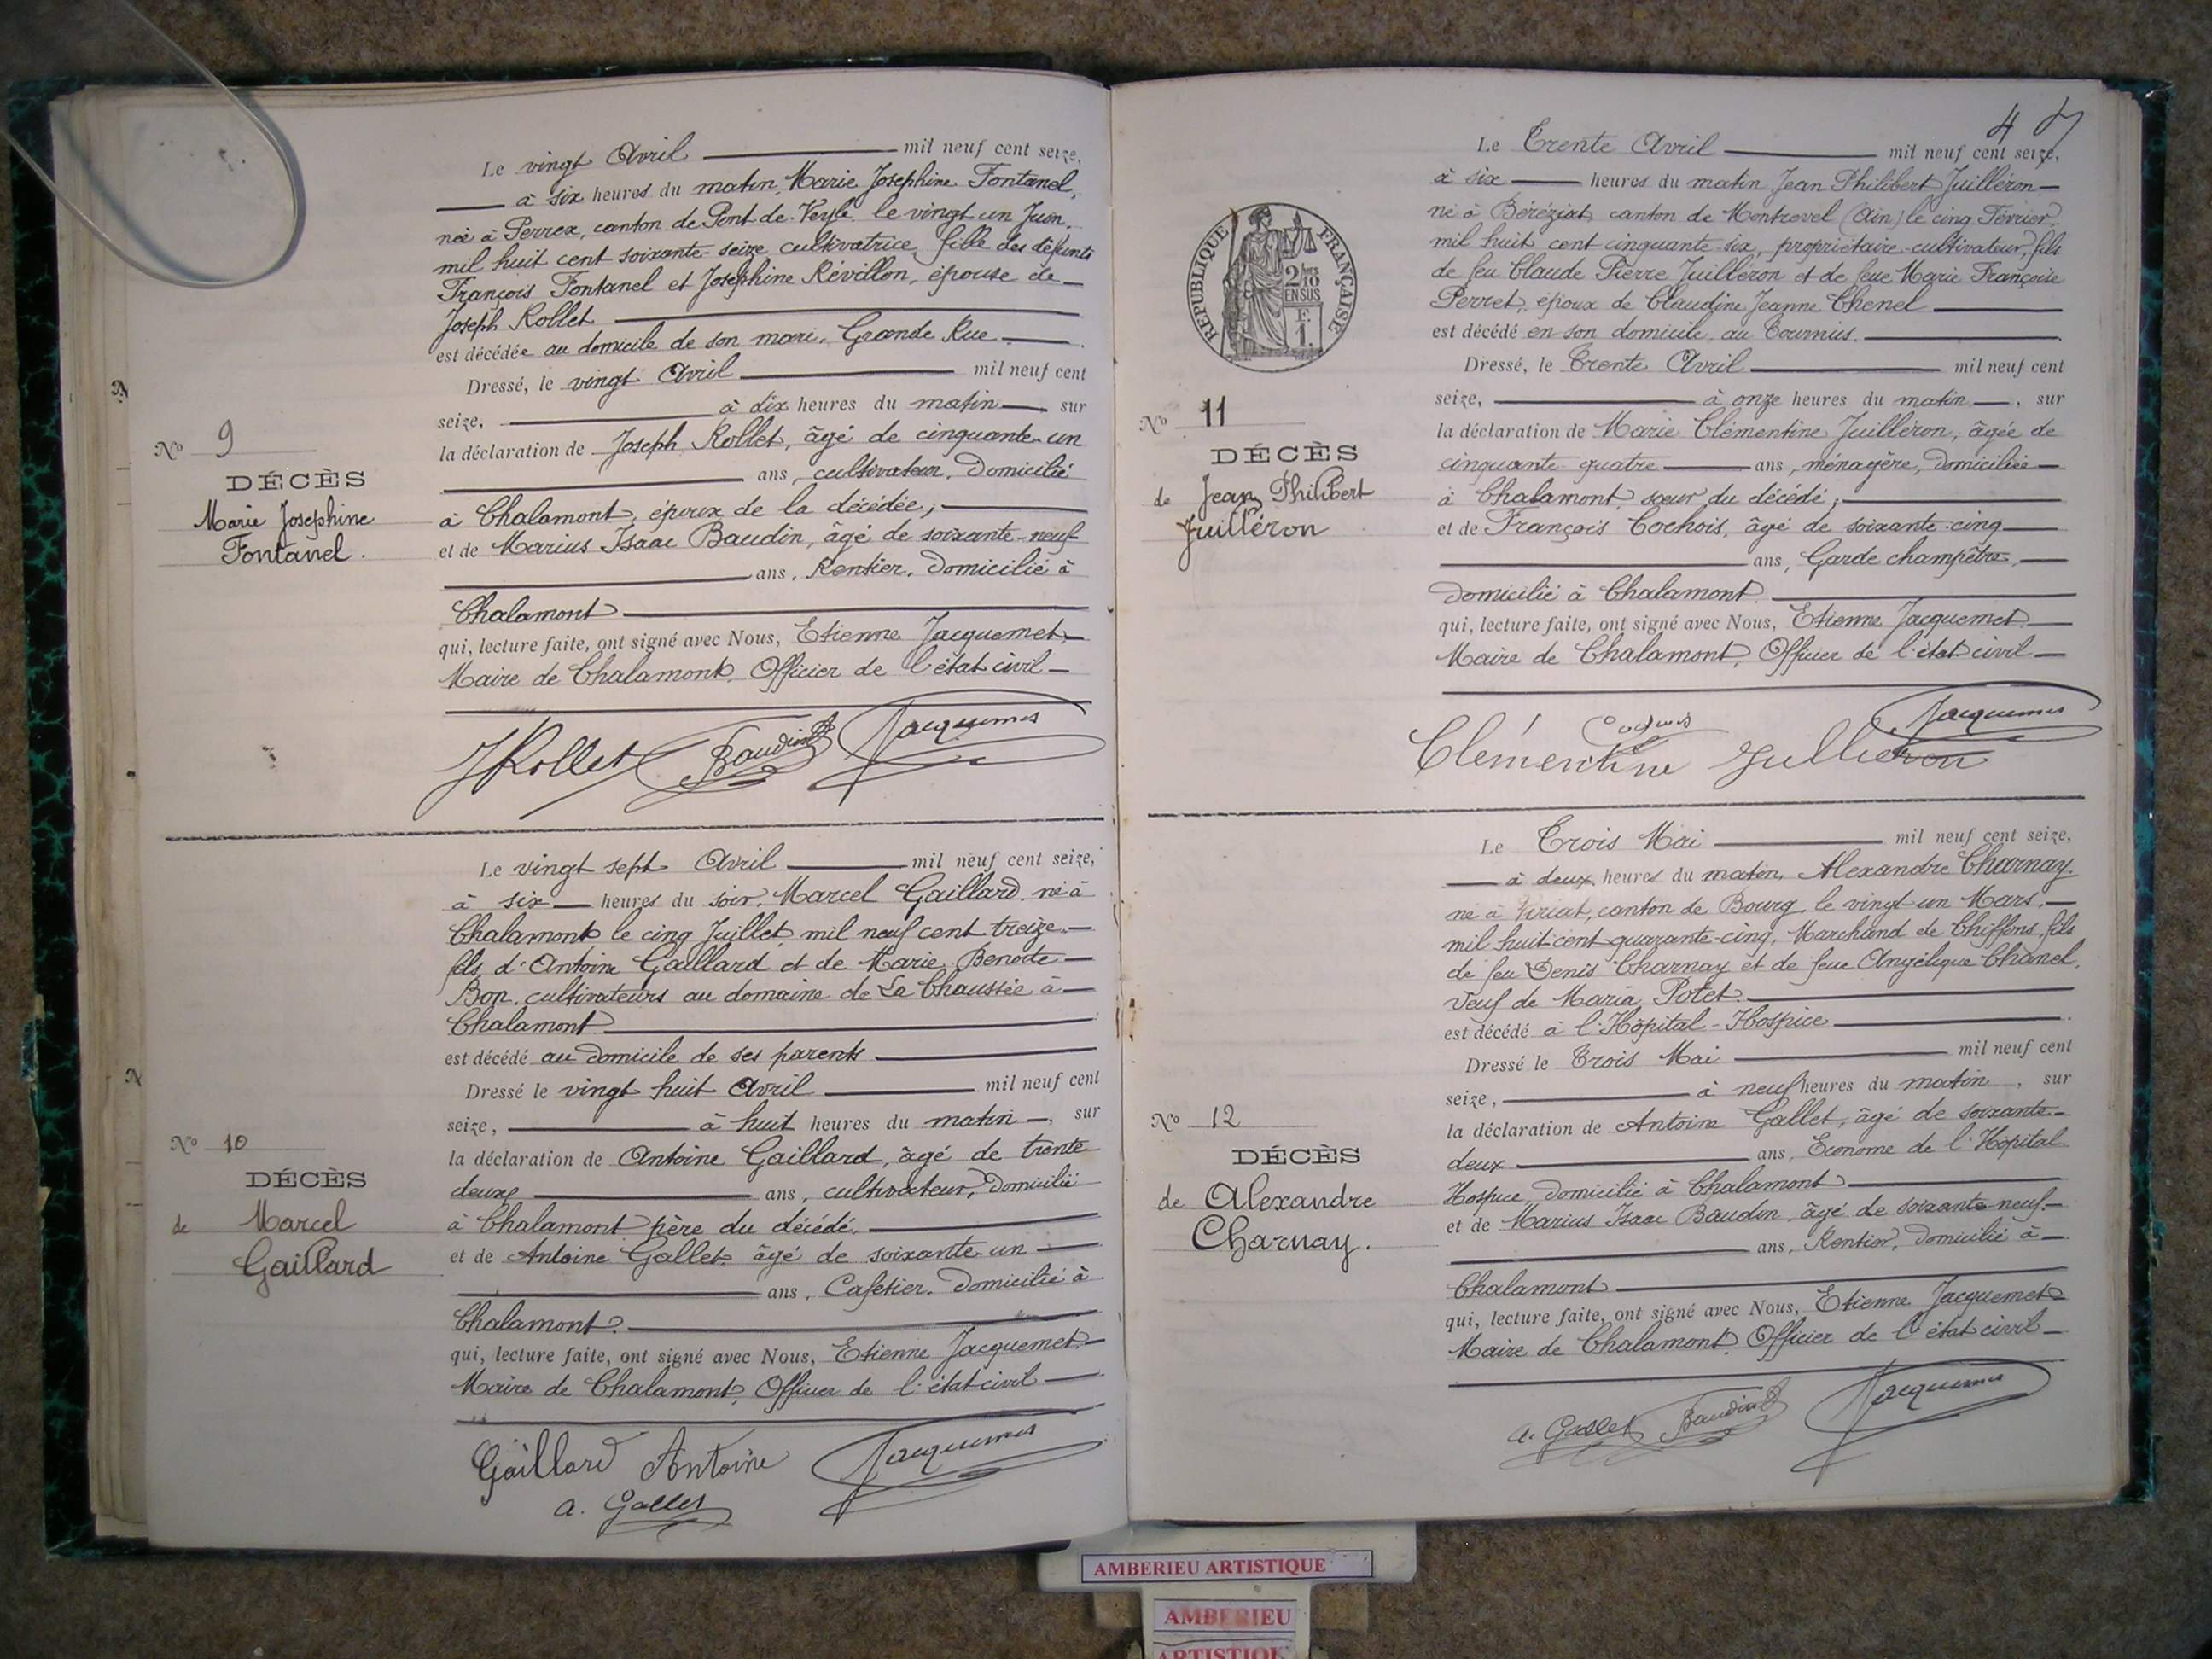 Le vingt Avril mil neuf cent seize,
à six heures du matin, Marie Josephine Fontanel,
née à Perrex, canton de Pont-de-Veyle, le vingt un Juin,
mil huit cent soixante-seize, cultivatrice, fille des défunts
François Fontanel et Josephine Révillon, épouse de
Joseph Rollet
est décédée au domicile de son mari, Grande Rue.
Dressé, le vingt Avril mil neuf cent
seize, à dix heures du matin, sur
la déclaration de Joseph Rollet, âgé de cinquante-un
ans, cultivateur, domicilié
à Chalamont, époux de la décédée;
et de Marius Isaac Baudin, âgé de soixante-neuf
ans, Rentier, domicilié à
Chalamont
qui, lecture faite, ont signé avec Nous, Etienne Jacquemet,
Maire de Chalamont, Officier de l'état civil
JRollet Baudin Jacquemet
No 9
DÉCÈS
Marie Josephine
Fontanel.
Le vingt sept Avril mil neuf cent seize,
à six heures du soir, Marcel Gaillard, né à
Chalamont le cinq Juillet mil neuf cent treize,
fils d'Antoine Gaillard et de Marie Benoite
Bon, cultivateurs au domaine de La Chaussée à
Chalamont
est décédé au domicile de ses parents
Dressé le vingt huit Avril mil neuf cent
seize, à huit heures du matin, sur
la déclaration de Antoine Gaillard, âgé de trente
deux ans, cultivateur, domicilié
à Chalamont père du décédé,
et de Antoine Gallet, âgé de soixante-un
ans, Cafetier, domicilié à
Chalamont.
qui, lecture faite, ont signé avec Nous, Etienne Jacquemet
Maire de Chalamont, Officier de l'état civil
Gaillard Antoine Jacquemet
a. Gallet
No 10
DÉCÈS
de Marcel
Gaillard
4
Le Trente Avril mil neuf cent seize,
à six heures du matin Jean Philibert Juilléron
né à Béréziat, canton de Montrevel (Ain) le cinq Février
mil huit cent cinquante-six, propriétaire-cultivateur, fils
de feu Claude Pierre Juilléron et de feue Marie Françoise
Perret, époux de Claudine Jeanne Chenel
est décédé en son domicile, au Tournius.
Dressé, le Trente Avril mil neuf cent
seize, à onze heures du matin, sur
la déclaration de Marie Clémentine Juilléron, âgée de
cinquante quatre ans, ménagère, domiciliée
à Chalamont, sœur du décédé;
et de François Cochois, âgé de soixante-cinq
ans, Garde champêtre,
domicilié à Chalamont
qui, lecture faite, ont signé avec Nous, Etienne Jacquemet
Maire de Chalamont, Officier de l'état civil
Jacquemet
Clémentine Jullieron
RÉPUBLIQUE FRANÇAISE
2/10
EN SUS
F.
1.
No 11
DÉCÈS
de Jean Philibert
Juilléron
Le Trois Mai mil neuf cent seize,
à deux heures du matin, Alexandre Charnay,
né à Viriat, canton de Bourg, le vingt un Mars,
mil huit cent quarante-cinq, Marchand de Chiffons, fils
de feu Denis Charnay et de feue Angélique Chanel,
Veuf de Maria Potet.
est décédé à l'Hôpital-Hospice.
Dressé le Trois Mai mil neuf cent
seize, à neuf heures du matin, sur
la déclaration de Antoine Gallet, âgé de soixante-
deux ans, Econome de l'Hopital
Hospice, domicilié à Chalamont
et de Marius Isaac Baudin âgé de soixante neuf
ans, Rentier, domicilié à
Chalamont
qui, lecture faite, ont signé avec Nous, Etienne Jacquemet
Maire de Chalamont, Officier de l'état civil
a. Gallet Baudin Jacquemet
No 12
DÉCÈS
de Alexandre
Charnay.
AMBERIEU ARTISTIQUE
AMBERIEU
ARTISTIQUE